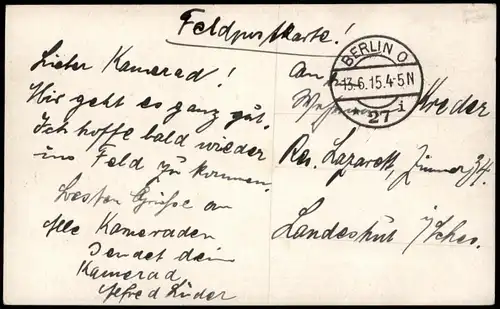 Feldpostkarte!
Lieber Kamerad!
Mir geht es ganz gut,
Ich hoffe bald wieder
ins Feld zu kommen.
besten Grüße an
Alle Kameraden
Sendet dein
Kamerad
Alfred Lüder
BERLIN O
13.6.15.4-5N
27 i
An
Kreder
Res. Lazarett Zimmer 34.
Landeshut i/Schles.